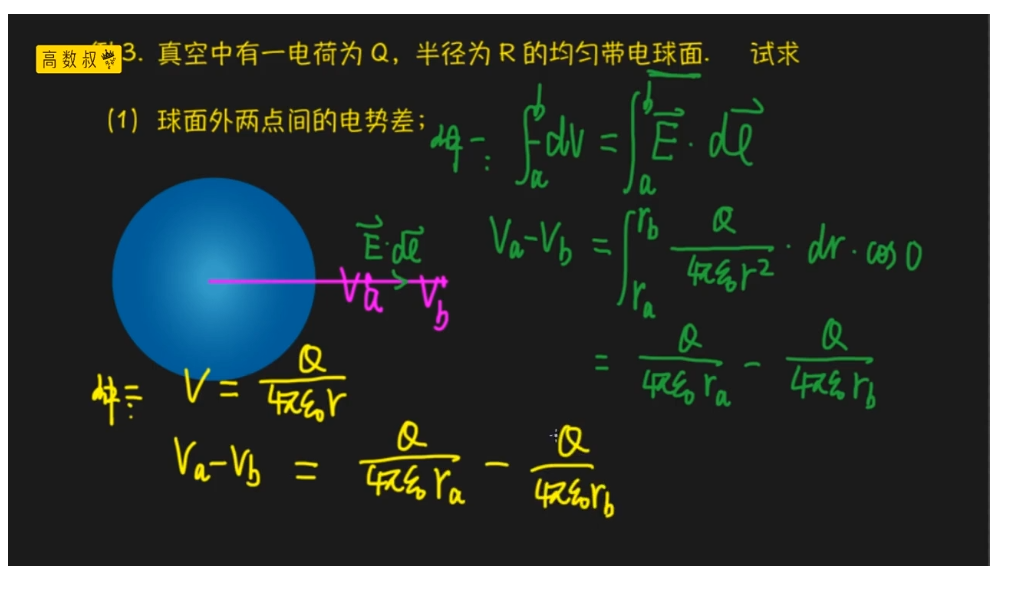 高数叔
例3. 真空中有一电荷为 Q，半径为 R 的均匀带电球面. 试求
(1) 球面外两点间的电势差；
法一: ∫_a^b dV = ∫_a^b E⃗ · dl⃗
E⃗·dl⃗
V_a-V_b = ∫_{r_a}^{r_b} Q/(4πε₀r²) · dr · cos0
V_a V_b
= Q/(4πε₀r_a) - Q/(4πε₀r_b)
法二: V = Q/(4πε₀r)
V_a-V_b = Q/(4πε₀r_a) - Q/(4πε₀r_b)